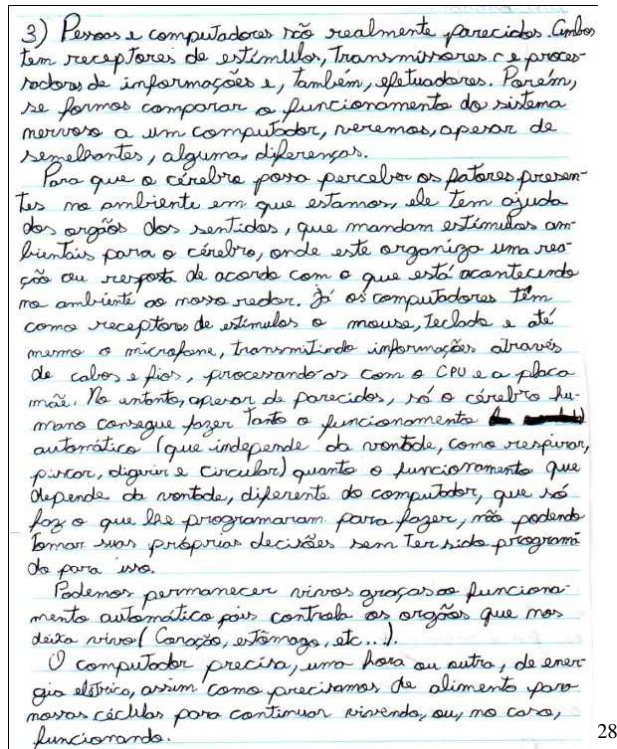 3) Pessoas e computadores são realmente parecidos. Ambos
tem receptores de estímulos, transmissores e proces-
sadores de informações e, também, efetuadores. Porém,
se formos comparar o funcionamento do sistema
nervoso a um computador, veremos, apesar de
semelhantes, algumas diferenças.
Para que o cérebro possa perceber os fatores presen-
tes no ambiente em que estamos, ele tem ajuda
dos orgãos dos sentidos, que mandam estímulos am-
bientais para o cérebro, onde este organiza uma rea-
ção ou resposta de acordo com o que está acontecendo
no ambiente ao nosso redor. Já os computadores têm
como receptores de estímulos o mouse, teclado e até
mesmo o microfone, transmitindo informações através
de cabos e fios, processando-os com o CPU e a placa
mãe. No entanto, apesar de parecidos, só o cérebro hu-
mano consegue fazer tanto o funcionamento
automático (que independe da vontade, como respirar,
piscar, digerir e circular) quanto o funcionamento que
depende da vontade, diferente do computador, que só
faz o que lhe programaram para fazer, não podendo
tomar suas próprias decisões sem ter sido programa
do para isso.
Podemos permanecer vivos graças ao funciona-
mento automático pois controla os orgãos que nos
deixa vivo (Coração, estômago, etc...).
O computador precisa, uma hora ou outra, de ener-
gia elétrica, assim como precisamos de alimento para
nossas células para continuar vivendo, ou, no caso,
funcionando.
28